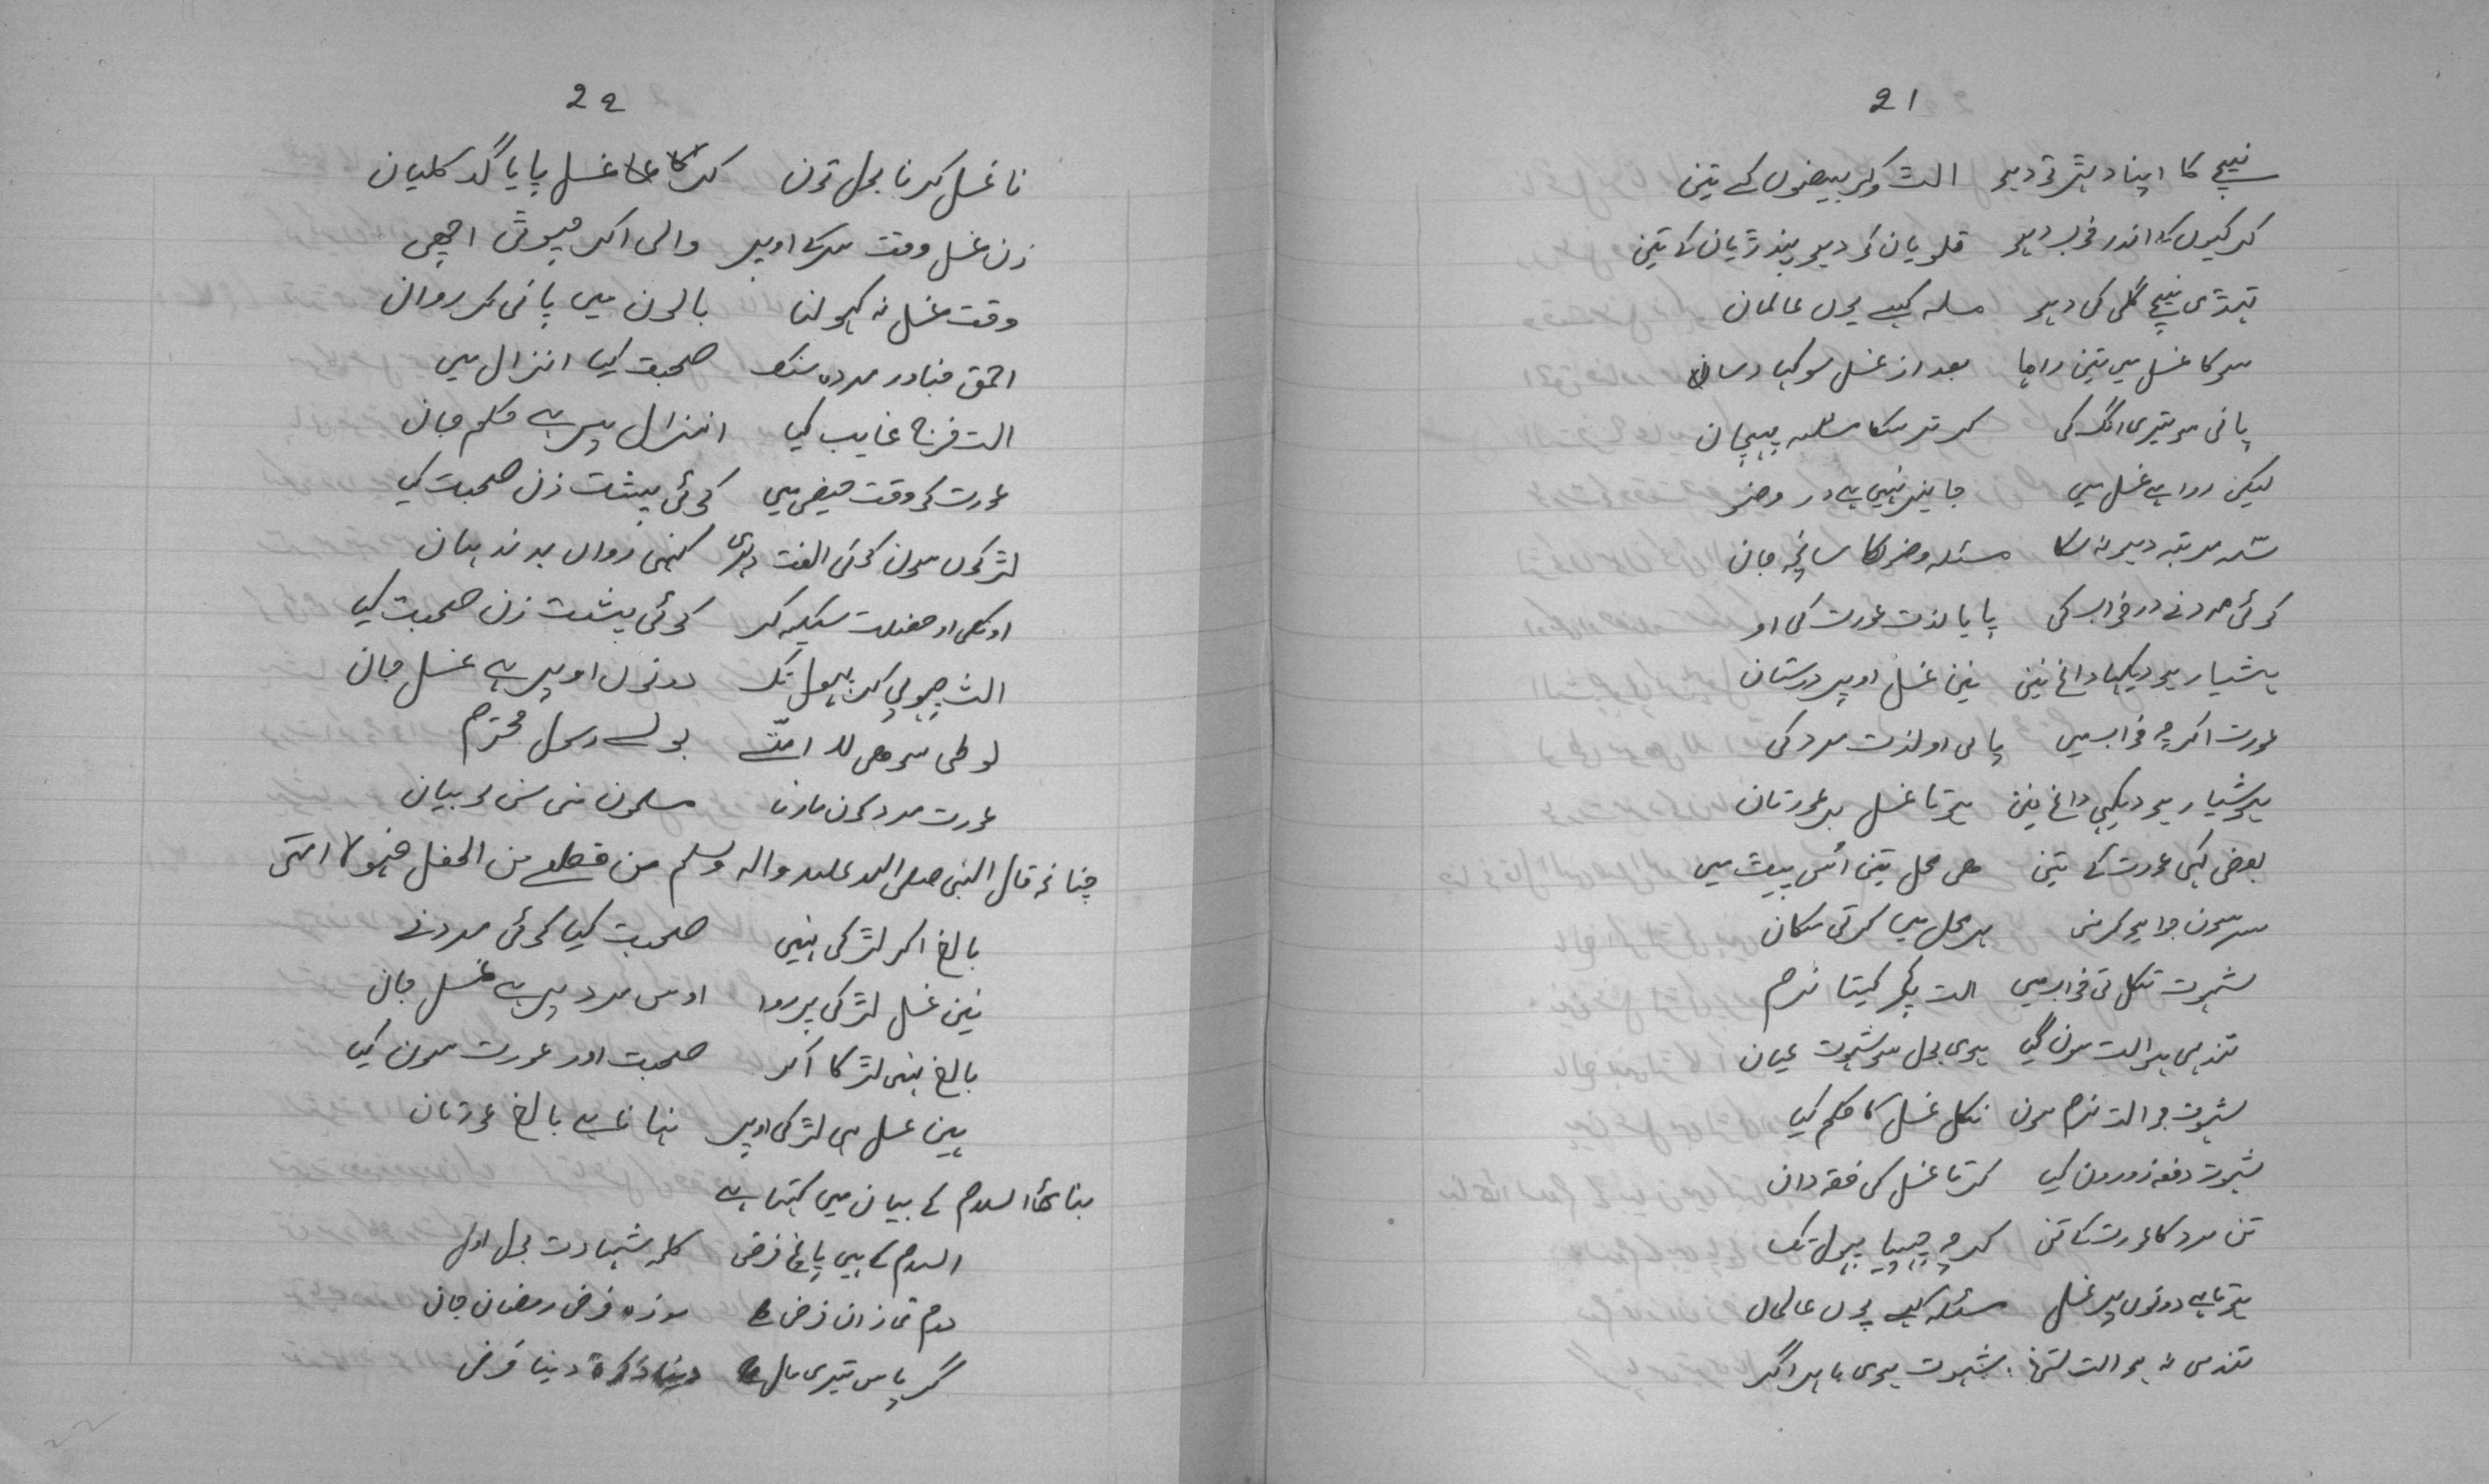 21
نیچے کا اپنا دہتر تو دہو الٹ کر بیضوں کے تین
کر کیوں کے اندر خوب دہو قلویان کو دہو پنڈریان کے تین
تہڈی نیچے گلی کی دہو مسلہ کہے یوں عالمان
سو کا غسل میں تین راہا بعد از غسل سو کہا رسان
پانی سو تیری انگ کی کر تر سکا مسلہ پہچان
لیکن روا ہے غسل میں جایز نہیں ہے در وضو
سہ مرتبہ دہونے کا مسئلہ وضو کا سانچہ جان
کوئی مرد نے در خواب کی پایا لذت عورت کی او
ہشیار ہو دیکہا داغ نیں نیں غسل اوپر درستان
عورت اگرچہ خواب میں پائی او لذت مرد کی
ہوشیار ہو دیکہی داغ نیں ہوتا غسل بر عورتان
بعض کہی عورت کے تین ہی محل تین اُس پیٹ میں
سر سون جدا ہو کر منی ہر محل میں کرتی مکان
شہوت نکل تی خواب میں الت پکر کیتا نرم
تندہی ہو الت سون گیا ہوی بول سو شہوت عیان
شہوت جو الت نرم سون نکل غسل کا حکم کیا
شہوت دفعہ زور سون کیا کرتا غسل کی فقہ دان
تن مرد کا عورت کے تن کرچہ چہپیا پہول تک
ہوتا ہے دونوں پر غسل مسئلہ کہے یوں عالمان
تندہی نہ ہو الت شہوت ہوی باہر اگر
22
نا غسل کرنا بول توں کر کا غسل پایا گر کلیان
زن غسل وقت سر کے اوپر والی اکر میوتی اچھی
وقت غسل نہ کہولنا بالون میں پانی کر روان
احمق جنادر مردہ سنگ صحبت کیا انزال میں
الت فرج غایب کیا انزال پر ہے حکم جان
عورت کو وقت حیض میں کوئی پشت زن صحبت کیا
لڑکوں سون کوئی الفت دہری کنہی زوان بد ندہان
اونکی او خصلت سیکہ کر کوئی پشت زن صحبت کیا
الٹ چہولی کر پہول تک دونوں اوپر ہے غسل جان
لوطی سو میں لا امتی بولے رسول محترم
عورت مرد کون مارنا مسلمون منی سن لو بیان
چنانچہ قال النبی صلی اللہ علیہ والہ وسلم من قطع من الحفل فہو لا امتی
بالغ اگر لڑکی نہیں صحبت کیا کوئی مرد نے
نیں غسل لڑکی پر روا اوس مرد پر ہے غسل جان
بالغ نہیں لڑکا اکر صحبت اور عورت سون کیا
نہیں غسل ہی لڑکی اوپر نہانا ہے بالغ عورتان
بنائے اسلام کے بیان میں کہتا ہے
اسلام کے ہیں پانچ فرض کلمہ شہادت بول اول
دوم نمازان فرض ہے روزہ فرض رمضان جان
گر پاس تیری مال ہے دینا زکوٰۃ دینا فرض